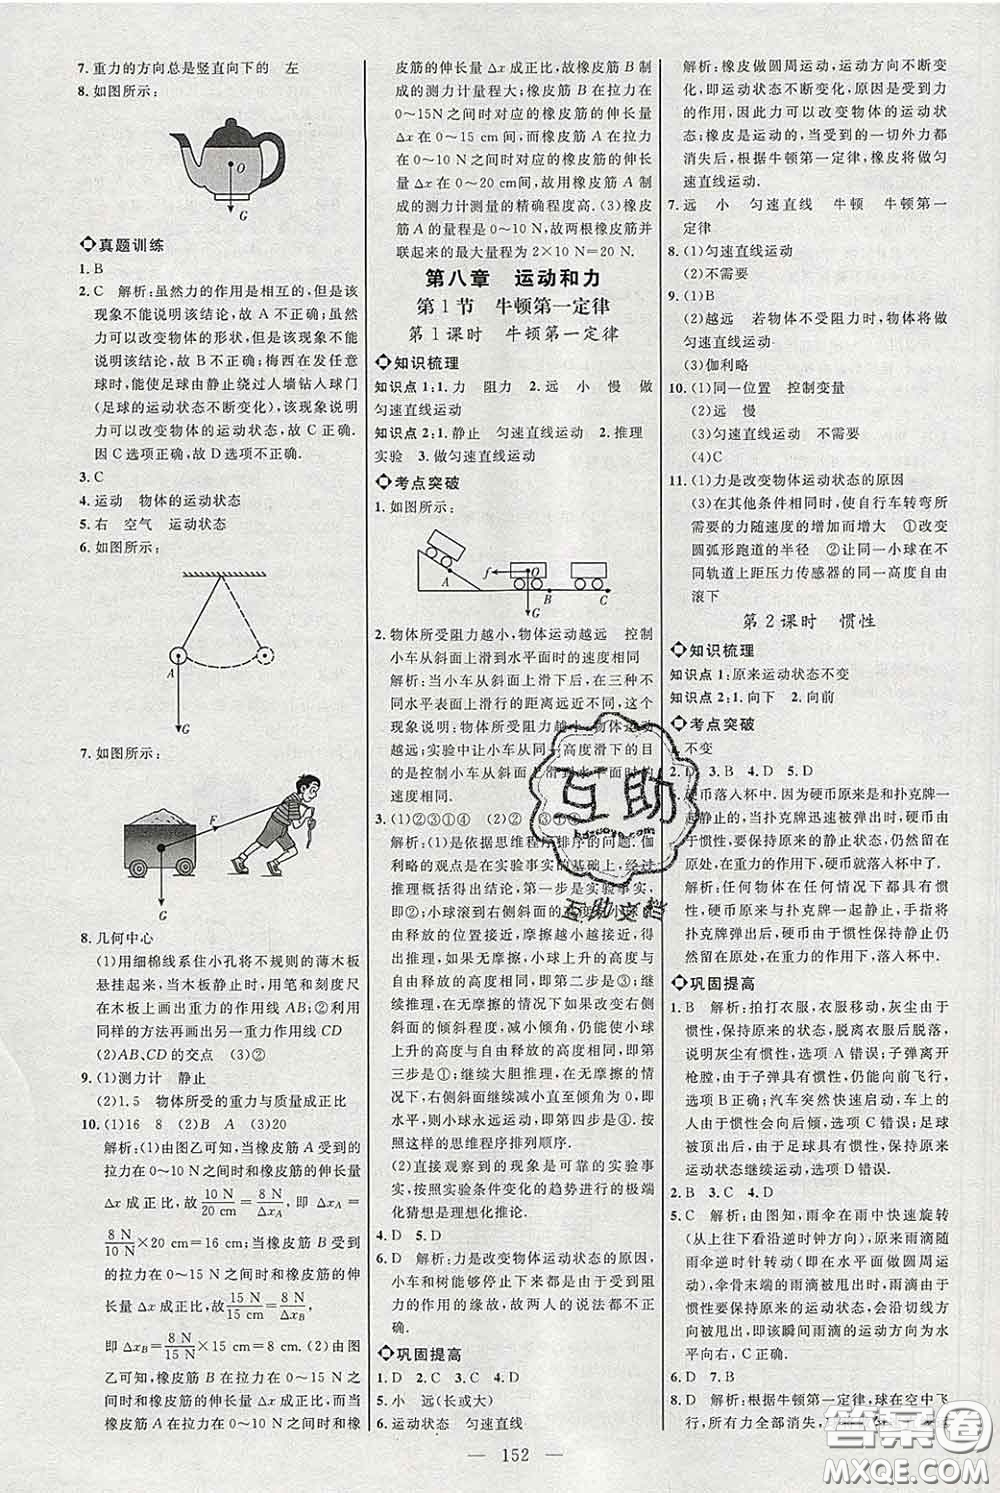 7. 重力的方向总是竖直向下的　左
8. 如图所示：
O
G
真题训练
1. B
2. C　解析：虽然力的作用是相互的，但是该
现象不能说明该结论，故 A 不正确；虽然力
可以改变物体的形状，但是该现象不能
说明该结论，故 B 不正确；梅西在发任意
球时，能使足球由静止绕过人墙钻入球门
（足球的运动状态不断变化），该现象说明
力可以改变物体的运动状态，故 C 正确.
因 C 选项正确，故 D 不正确.
3. C
4. 运动　物体的运动状态
5. 右　空气　运动状态
6. 如图所示：
A
G
7. 如图所示：
F
G
8. 几何中心
(1)用细棉线系住小孔将不规则的薄木板
悬挂起来，当木板静止时，用笔和刻度尺
在木板上画出重力的作用线 AB；②利用
同样的方法再画出另一重力作用线 CD
(2)AB、CD 的交点　(3)②
9. (1)测力计　静止
(2)1.5　物体所受的重力与质量成正比
10. (1)16　8　(2)B　A　(3)20
解析：(1)由图乙可知，当橡皮筋 A 受到的
拉力在 0～10 N 之间时和橡皮筋的伸长量
Δx 成正比，故 10 N/20 cm = 8 N/Δx_A，即 Δx_A =
8 N/10 N × 20 cm = 16 cm；当橡皮筋 B 受到
的拉力在 0～15 N 之间时和橡皮筋的伸
长量 Δx 成正比故 15 N/15 cm = 8 N/Δx_B，
即 Δx_B = 8 N/15 N × 15 cm = 8 cm；(2)由图
乙可知，橡皮筋 A 在拉力 0～10 N 之间时
和橡皮筋的伸长量 Δx 成正比，而橡
皮筋 B 在拉力 0～15 N 之间时和橡
皮筋的伸长量 Δx 成正比，故橡皮筋 B 制
成的测力计量程大；橡皮筋 B 在拉力在
0～15N 之间时对应的橡皮筋的伸长量
Δx 在 0～15 cm 之间，而橡皮筋 A 在拉力
在 0～10 N 之间时对应的橡皮筋的伸长
量 Δx 在 0～20 cm间，故用橡皮筋 A 制成
的测力计测量的精确程度高. (3)橡皮
筋 A 的量程是 0～10 N，故两根橡皮筋并
联起来的最大量程为 2×10 N＝20 N.
第八章　运动和力
第 1 节　牛顿第一定律
第 1 课时　牛顿第一定律
知识梳理
知识点 1：1. 力　阻力　2. 远　小　慢　做
匀速直线运动
知识点 2：1. 静止　匀速直线运动　2. 推理
实验　3. 做匀速直线运动
考点突破
1. 如图所示：
A
f
O
G
B
C
2. 物体所受阻力越小，物体运动越远　控制
小车从斜面上滑到水平面时的速度相同
解析：当小车从斜面上滑下后，在三种不
同水平面上滑行的距离逐渐变大，这个
现象说明：物体所受阻力越小，物体运动
越远；实验中让小车从同一高度滑下的目
的是控制小车从斜面上滑到水平面时的
速度相同.
3. (1)②③①④　(2)②　①③④
解析：(1)是依据思维程序排序的问题. 伽
利略的观点是在实验事实的基础上，经过
推理得出的结论，第一步是实验事实，
即②；小球滚到右侧斜面的高度与小球自
由释放的位置接近，摩擦越小越接近，所
以如果没有摩擦，小球上升的高度与
自由释放的高度相同，即第二步是③；
继续推理，在无摩擦的情况下如果改变右侧
斜面的倾斜程度，减小倾角，仍能使小球
上升的高度与自由释放的高度相同，即第
三步是①；继续大胆推理，在无摩擦的情
况下，如果继续倾斜减小直至倾角为 0，即
水平，则小球永远运动，即第四步是④. 故
按照这样的思维程序排列顺序.
(2)直接观察到的现象是可靠的实验事
实，按照实验条件变化的趋势进行的极端
化猜想是理想化推论.
4. D　5. D
6. D　解析：力是改变物体运动状态的原因，
小车和树能够停止下来都是由于受到阻
力的作用的缘故，故两人的说法都不正
确.
巩固提高
1. D　2. C　3. C　4. D
5. 小　远(长或大)
6. 运动状态　匀速直线
解析：橡皮做圆周运动，运动方向不断变
化，即运动状态不断变化，原因是受到力
的作用，因此力可以改变物体的运动状
态；橡皮是运动的，当受到的一切外力都
消失后，根据牛顿第一定律，橡皮将做匀
速直线运动.
7. 远　小　匀速直线　牛顿　牛顿第一
定律
8. (1)匀速直线运动
(2)不需要
9. (1)B
(2)越远　若物体不受阻力时，物体将做
匀速直线运动
(3)伽利略
10. (1)同一位置　控制变量
(2)远　慢
(3)匀速直线运动　不需要
(4)C
11. (1)力是改变物体运动状态的原因
(3)在其他条件相同时，使自行车转弯所
需要的力随速度的增加而增大　①改变
圆弧形跑道的半径　②让同一小球在不
同轨道上距压力传感器的同一高度自由
滚下
第 2 课时　惯性
知识梳理
知识点 1：原来运动状态不变
知识点 2：1. 向下　2. 向前
考点突破
1. 不变
2. D　3. B　4. D　5. D
硬币落入杯中，是因为硬币原来和扑克牌
一起静止的，当扑克牌迅速被弹出时，硬币由
于惯性，要保持原来的静止状态，仍然停留在
原处，在重力的作用下，硬币就落入杯中了.
解析：任何物体在任何情况下都具有惯
性. 硬币与扑克牌一起静止，用手指将扑
克牌弹出后，硬币由于惯性保持静止状态仍
然留在原处，在重力的作用下落入杯中.
巩固提高
1. B　解析：拍打衣服，衣服移动，灰尘由于
惯性，保持原来的状态，脱离衣服后脱落，
说明灰尘有惯性，选项 A 错误；子弹离开
枪膛时，由于子弹具有惯性，能继续向前飞行，
选项 B 正确；汽车突然减速时，车上的人
由于惯性，向前倾，选项 C 错误；足球
被顶出后，由于足球有惯性，仍然保持原来
运动状态继续运动，选项 D 错误.
2. B　3. C　4. D
5. C　解析：由图知，雨伞在雨中快速旋转
(从上往下看沿逆时针方向)，原来雨滴随
雨伞逆时针转动(在伞上做圆周运
动)，伞骨末端的雨滴被甩出时，雨滴由于
惯性要保持原来的运动状态，会沿切线方
向被甩出，即该瞬间雨滴的运动方向为水
平向右，C 正确.
6. D　7. B
8. D　解析：根据牛顿第一定律，球在空中飞
行，所有力全部消失，
互助
hdzoowyb.com
互助文档
答案圈
MXQE.COM
— 152 —